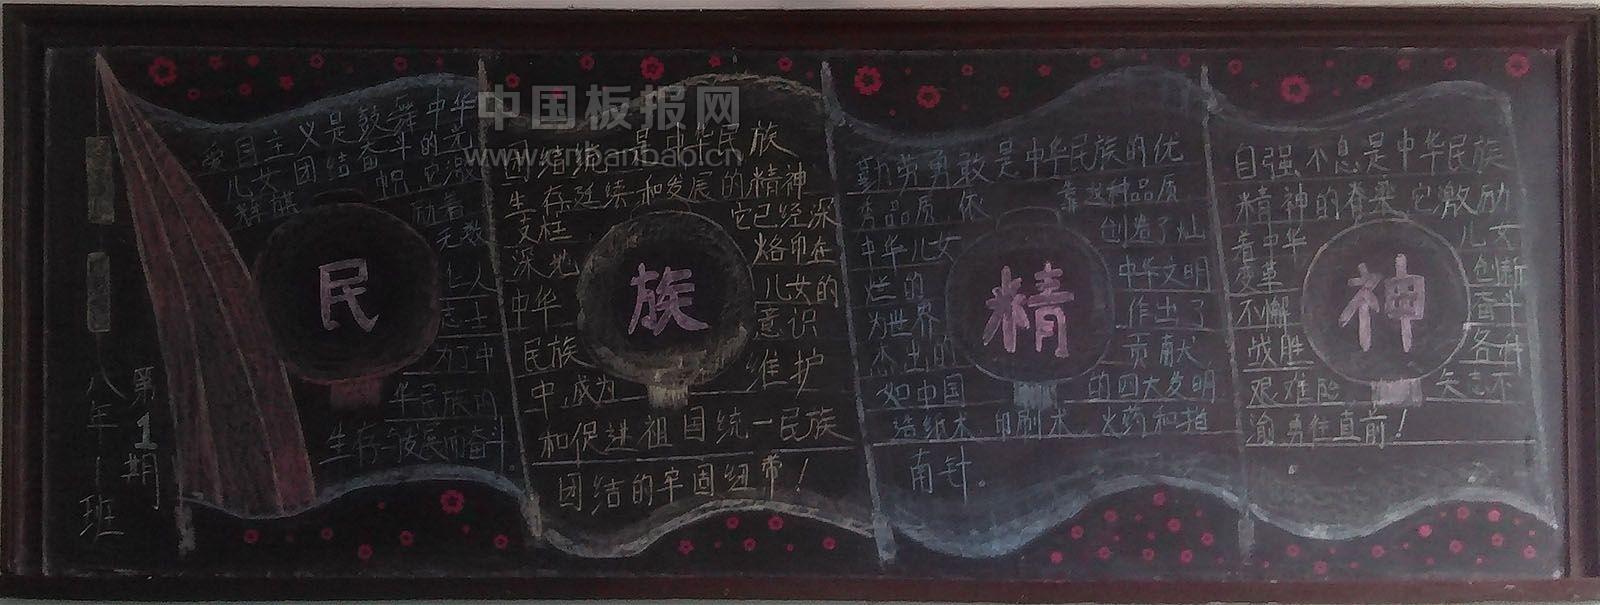 中国板报网
www.cnbanbao.cn
八年一班
第1期
民
族
精
神
爱国主义是鼓舞中华
儿女团结奋斗的光
辉旗帜它激
励着
无数
仁人
志士
为了中
华民族的
生存发展而奋斗。
团结统一是中华民族
生存延续和发展的精神
支柱 它已经深
深地 烙印在
中华 儿女的
民族 意识
中,成为 维护
和促进祖国统一民族
团结的牢固纽带!
勤劳勇敢是中华民族的优
秀品质,依靠这种品质
中华儿女 创造了灿
烂的 中华文明
为世界 作出了
杰出的 贡献
如中国的四大发明
造纸术 印刷术 火药和指
南针。
自强不息是中华民族
精神的脊梁它激励
着中华 儿女
变革 创新
不懈 奋斗
战胜 各种
艰难险 矢志不
渝勇往直前!